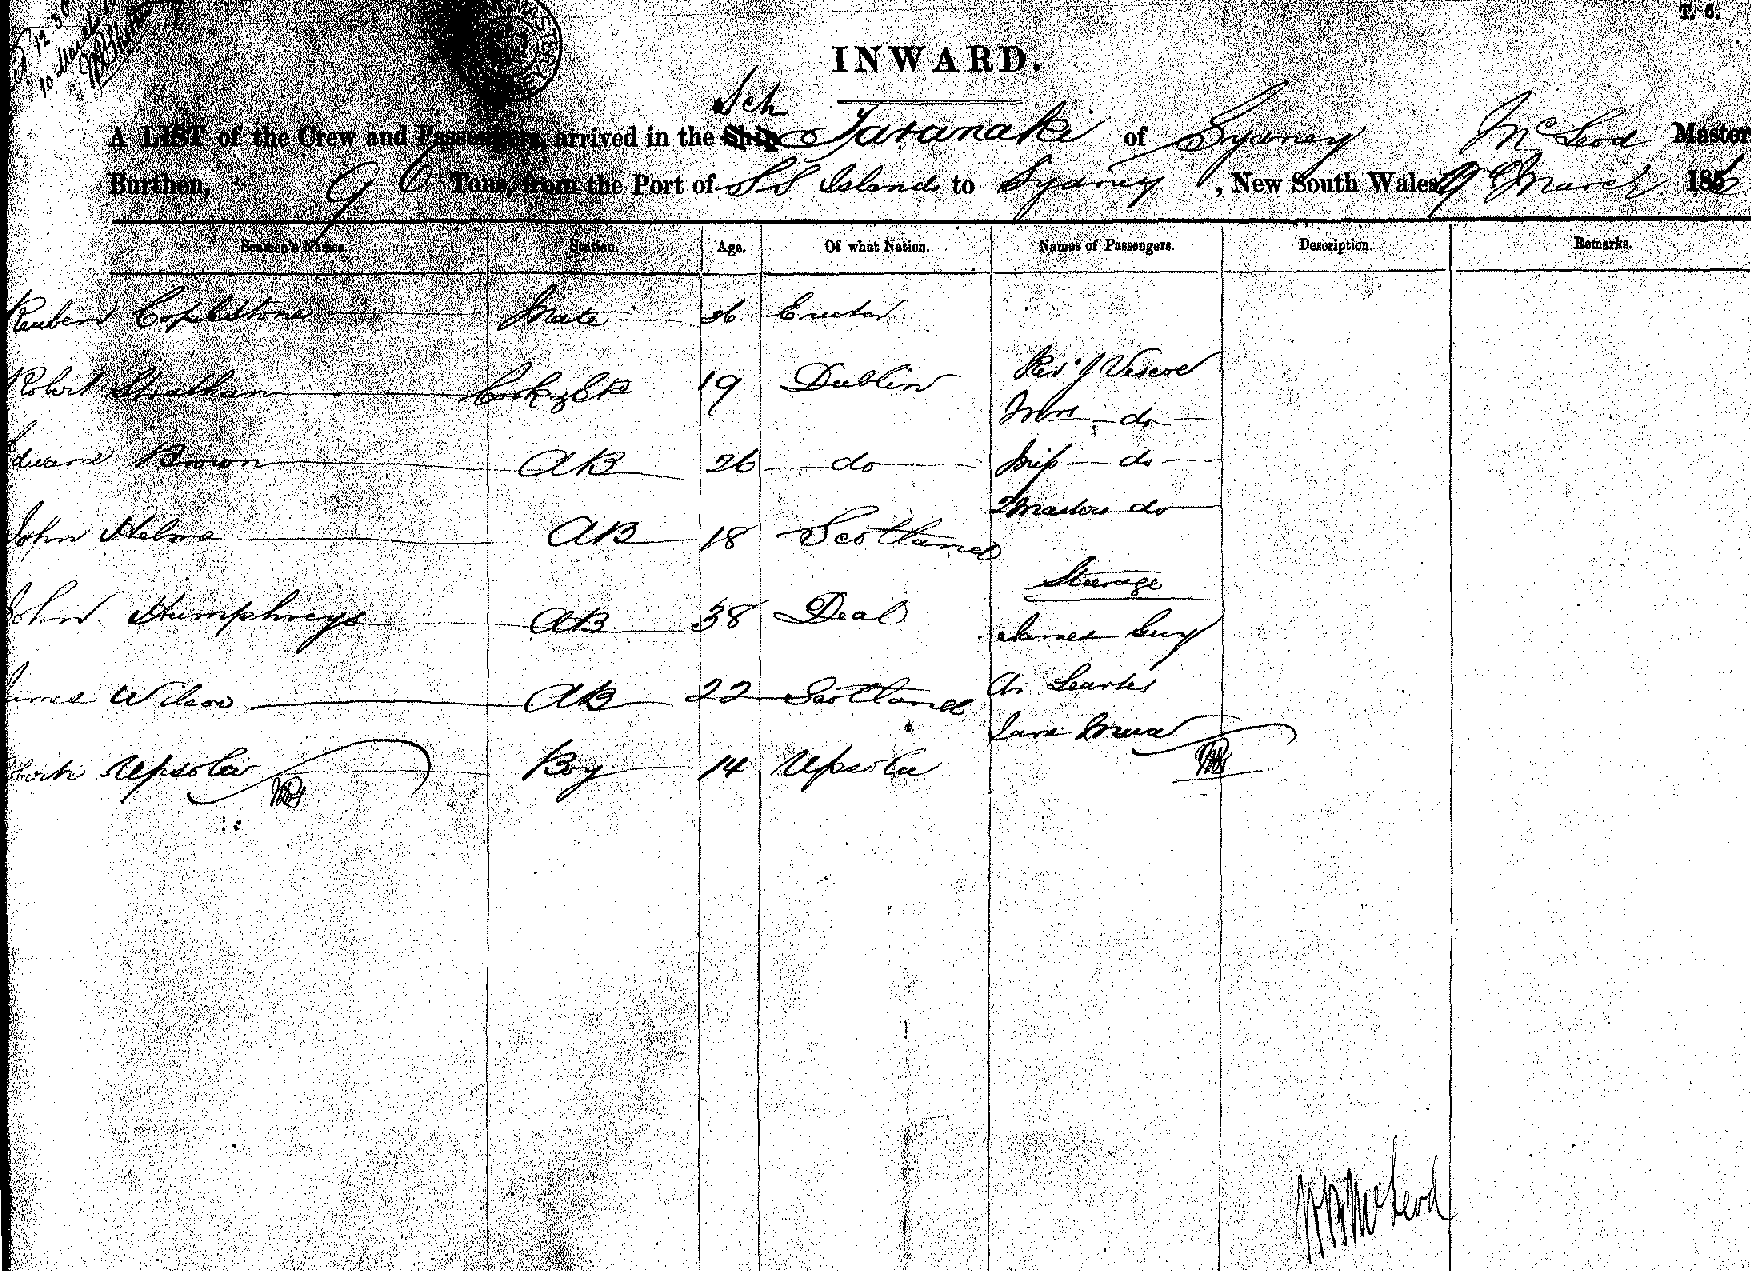 T. 6.
INWARD.
Sch
A LIST of the Crew and Passengers, arrived in the Ship Taranaki of Sydney McLeod Master
Burthen, 90 Tons, from the Port of S S Islands to Sydney , New South Wales, 9 March 185
Seamen's Names. Station. Age. Of what Nation. Names of Passengers. Description. Remarks.
Reuben Coplestone Mate 26 Exeter
Robert Cook & AB 19 Dublin
Revd J
Mrs do
Edward Brown AB 26 do Miss do
2 Masters do
John AB 18 Scotland
Steerage
John Humphreys AB 38 Deal
James Guy
James Wilson AB 22 Scotland
Upsolu Boy 14 Upsolu
McLeod